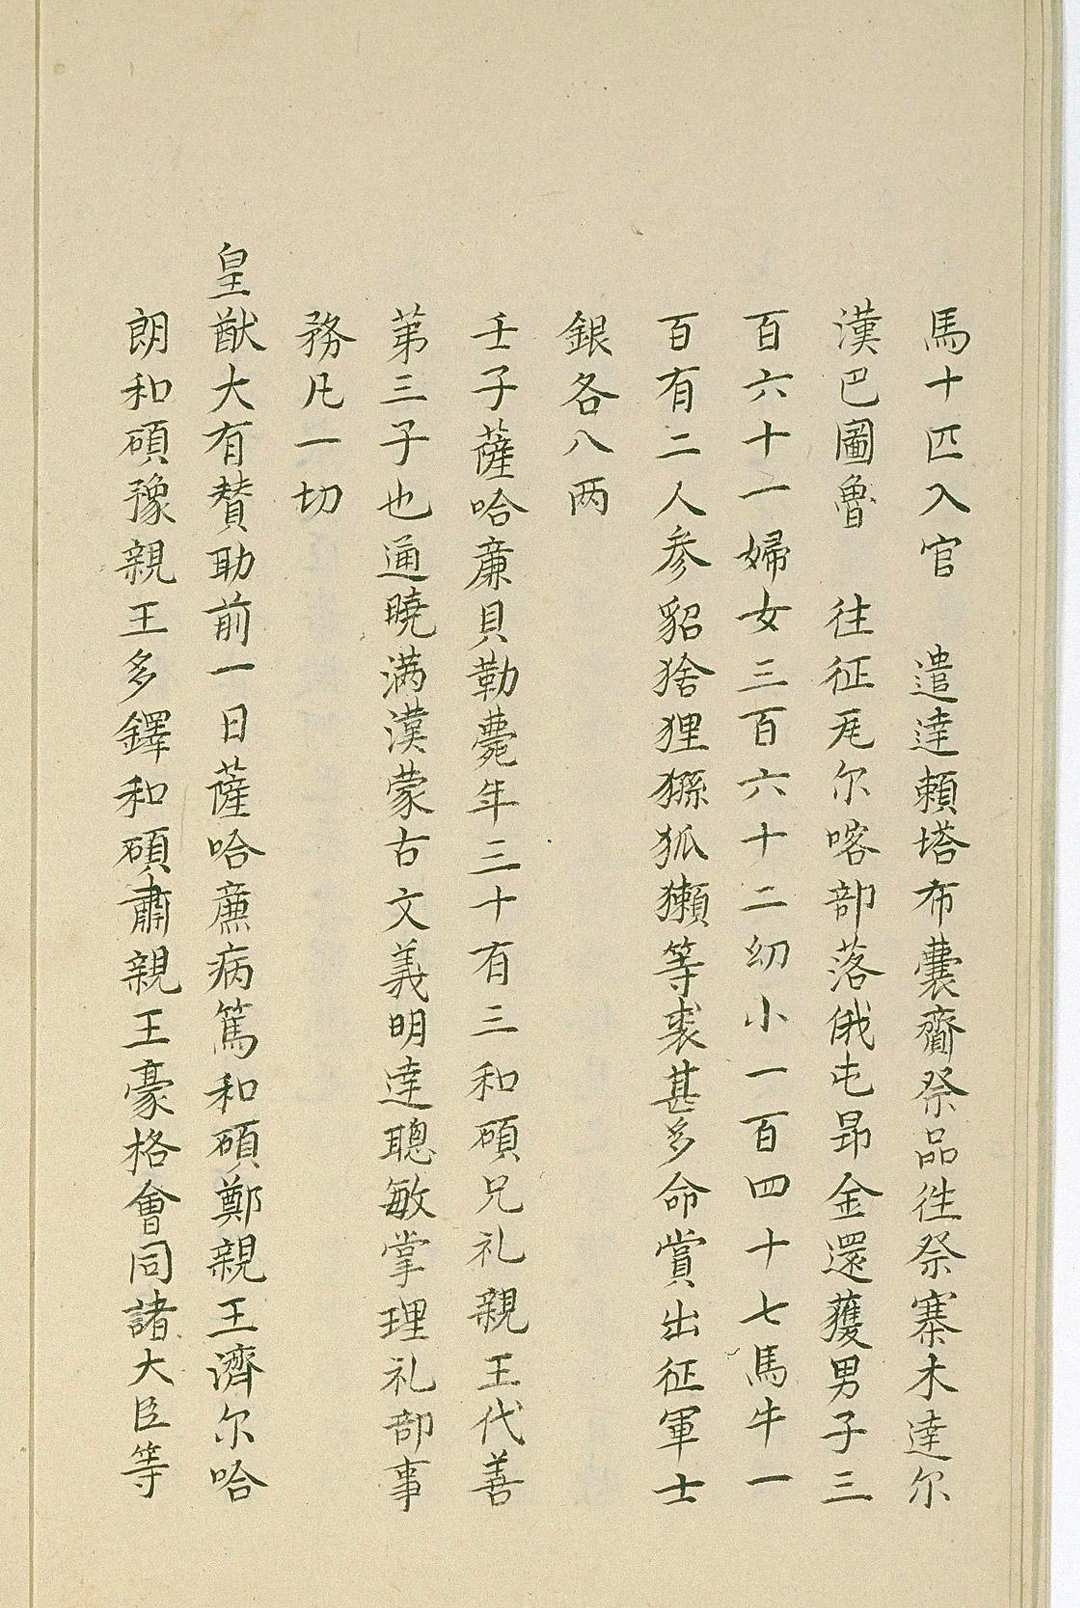 馬十匹入官　遣達賴塔布囊齎祭品徃祭寨木達尔
漢巴圖魯　往征厐尔喀部落俄屯昂金還獲男子三
百六十一婦女三百六十二幼小一百四十七馬牛一
百有二人参貂猞狸猻狐獺等裘甚多命賞出征軍士
銀各八两
壬子薩哈亷貝勒薨年三十有三和碩兄礼親王代善
苐三子也通曉满漢蒙古文義明達聰敏掌理礼部事
務凡一切
皇猷大有賛助前一日薩哈亷病篤和碩鄭親王濟尔哈
朗和碩豫親王多鐸和碩肅親王豪格會同諸大臣等